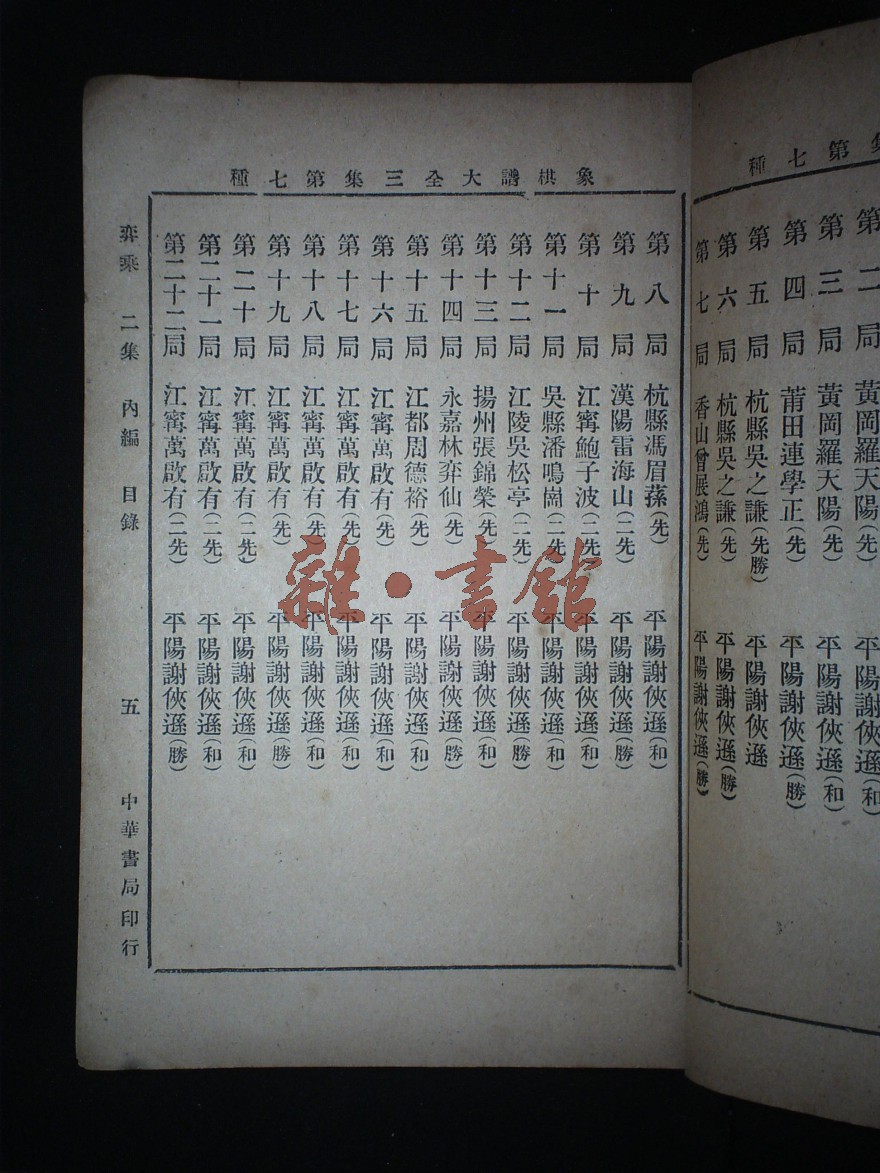 象棋譜大全三集第七種
第八局 杭縣馮眉蓀(先) 平陽謝俠遜(和)
第九局 漢陽雷海山(二先) 平陽謝俠遜(勝)
第十局 江寗鮑子波(二先) 平陽謝俠遜(和)
第十一局 吳縣潘鳴崗(二先) 平陽謝俠遜(和)
第十二局 江陵吳松亭(二先) 平陽謝俠遜(勝)
第十三局 揚州張錦榮(先) 平陽謝俠遜(和)
第十四局 永嘉林弈仙(先) 平陽謝俠遜(勝)
第十五局 江都周德裕(先) 平陽謝俠遜(和)
第十六局 江寗萬啟有(先) 平陽謝俠遜(和)
第十七局 江寗萬啟有(先) 平陽謝俠遜(和)
第十八局 江寗萬啟有(先) 平陽謝俠遜(和)
第十九局 江寗萬啟有(先) 平陽謝俠遜(勝)
第二十局 江寗萬啟有(二先) 平陽謝俠遜(和)
第二十一局 江寗萬啟有(二先) 平陽謝俠遜(和)
第二十二局 江寗萬啟有(二先) 平陽謝俠遜(勝)
弈乘 二集 內編 目錄 五 中華書局印行
第七種
第二局 黃岡羅天陽(先) 平陽謝俠遜(和)
第三局 黃岡羅天陽(先) 平陽謝俠遜(和)
第四局 莆田連學正(先) 平陽謝俠遜(勝)
第五局 杭縣吳之謙(先勝) 平陽謝俠遜
第六局 杭縣吳之謙(先) 平陽謝俠遜(勝)
第七局 香山曾展鴻(先) 平陽謝俠遜(勝)
雜·書館